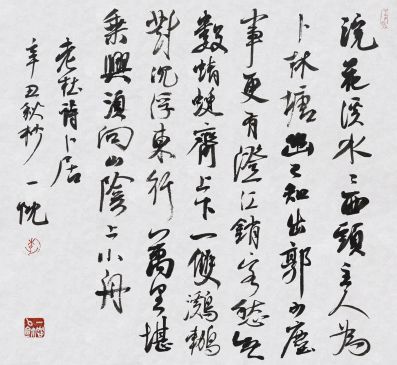 浣花溪水〻西頭主人為
卜林塘幽已知出郭少塵
事更有澄江銷客愁無
數蜻蜓齊上下一雙鸂鶒
對沉浮東行萬里堪
乘興須向山陰上小舟
老杜詩卜居
辛丑秋杪一忱